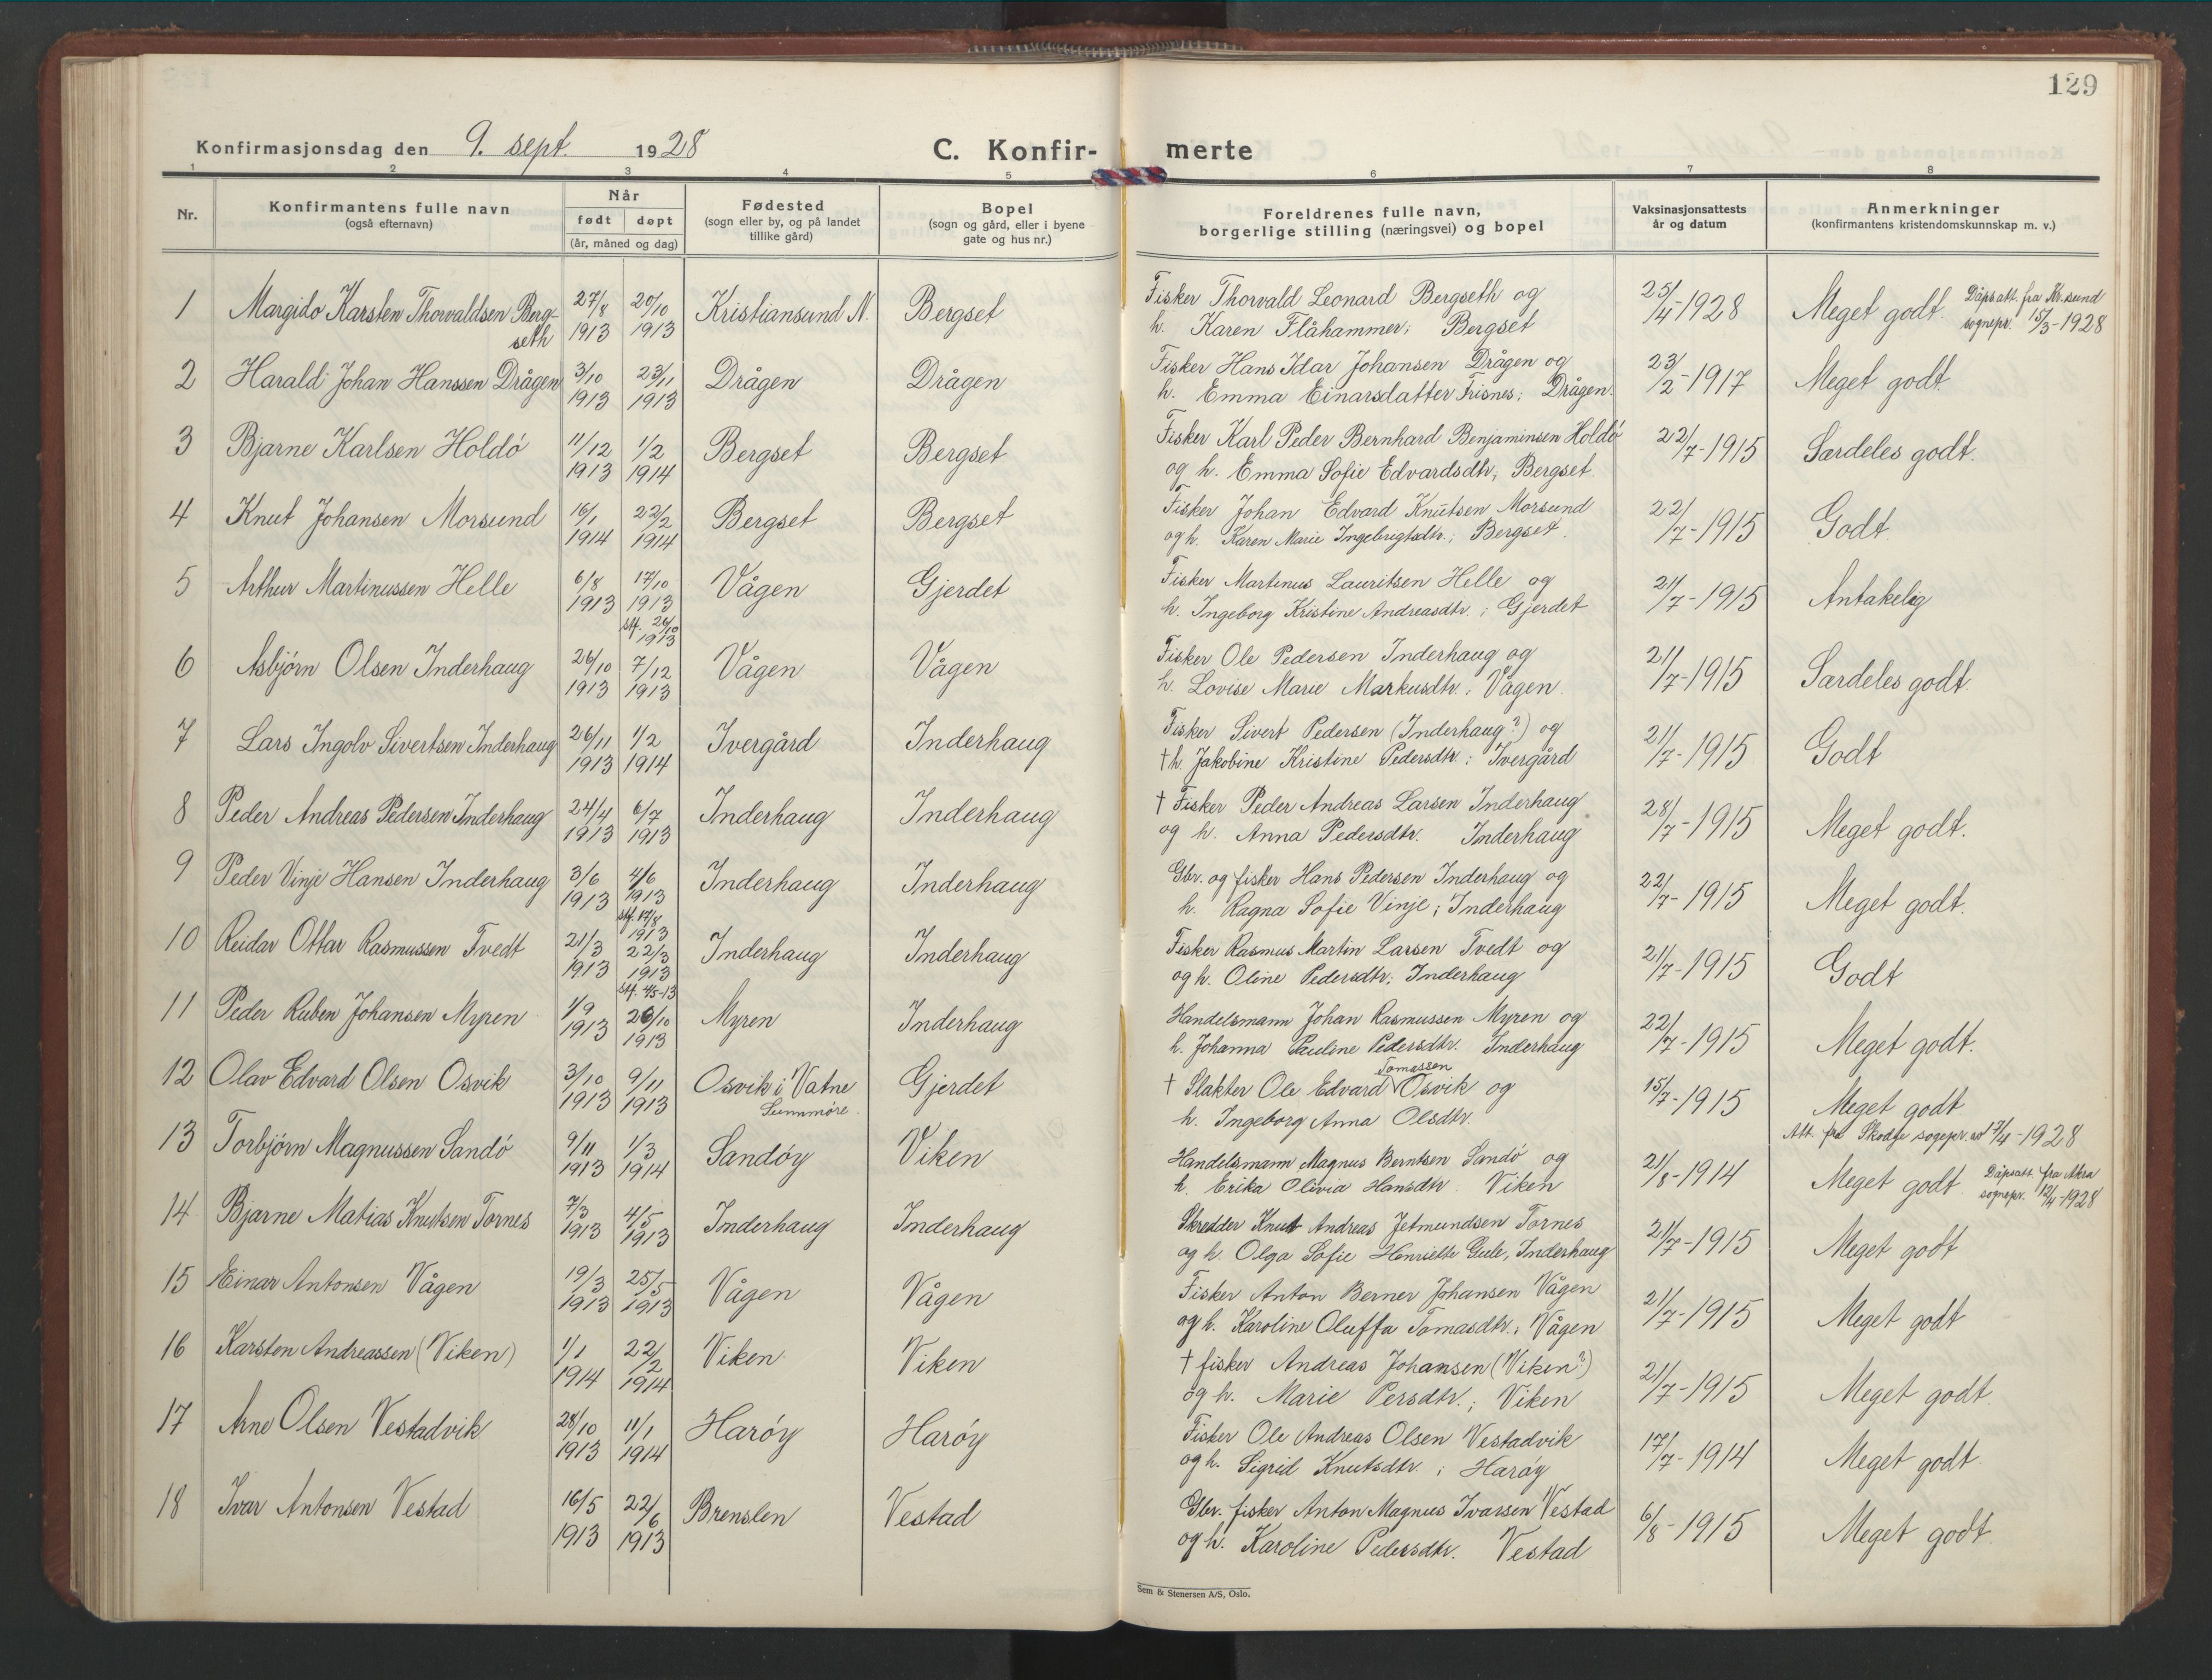 129
Konfirmasjonsdag den 9. sept. 1928
C. Konfir- merte
1 2 3 4 5 6 7 8
Nr.
Konfirmantens fulle navn
(også efternavn)
Når
født døpt
(år, måned og dag)
Fødested
(sogn eller by, og på landet
tillike gård)
Bopel
(sogn og gård, eller i byene
gate og hus nr.)
Foreldrenes fulle navn,
borgerlige stilling (næringsvei) og bopel
Vaksinasjonsattests
år og datum
Anmerkninger
(konfirmantens kristendomskunnskap m. v.)
1 Margido Karsten Thorvaldsen Berg-
seth 27/8 1913 20/10 1913 Kristiansund N. Bergset
Fisker Thorvald Leonard Bergseth og
h. Karen Flåhammer; Bergset
25/4-1928 Meget godt. Dåpsatt. fra Kr.sund
sognepr. 15/3-1928
2 Harald Johan Hanssen Drågen 3/10 1913 23/11 1913 Drågen Drågen
Fisker Hans Idar Johansen Drågen og
h. Emma Einarsdatter Frisnes; Drågen.
23/2-1917 Meget godt.
3 Bjarne Karlsen Holdø 11/12 1913 1/2 1914 Bergset Bergset
Fisker Karl Peder Bernhard Benjaminsen Holdø
og h. Emma Sofie Edvardsdtr; Bergset.
22/7-1915 Særdeles godt.
4 Knut Johansen Morsund 16/1 1914 22/2 1914 Bergset Bergset
Fisker Johan Edvard Knutsen Morsund
og h. Karen Marie Ingebrigtsdtr.; Bergset.
22/7-1915 Godt.
5 Arthur Martinussen Helle 6/8 1913 17/10 1913 stf. 26/10 1913 Vågen Gjerdet
Fisker Martinus Lauritsen Helle og
h. Ingeborg Kristine Andreasdtr.; Gjerdet
21/7-1915 Antakelig
6 Asbjørn Olsen Inderhaug 26/10 1913 7/12 1913 Vågen Vågen
Fisker Ole Pedersen Inderhaug og
h. Lovise Marie Markusdtr.; Vågen.
21/7-1915 Særdeles godt.
7 Lars Ingolv Sivertsen Inderhaug 26/11 1913 1/2 1914 Ivergård Inderhaug
Fisker Sivert Pedersen (Inderhaug?) og
† h. Jakobine Kristine Pedersdtr.; Ivergård
21/7-1915 Godt
8 Peder Andreas Pedersen Inderhaug 24/4 1913 6/7 1913 Inderhaug Inderhaug
† Fisker Peder Andreas Larsen Inderhaug
og h. Anna Pedersdtr. Inderhaug
28/7-1915 Meget godt.
9 Peder Vinje Hansen Inderhaug 3/6 1913 4/6 1913 stf. 17/8 1913 Inderhaug Inderhaug
Gbr. og fisker Hans Pedersen Inderhaug og
h. Ragna Sofie Vinje; Inderhaug
22/7-1915 Meget godt.
10 Reidar Ottar Rasmussen Tvedt 21/3 1913 22/3 1913 stf. 4/5-13 Inderhaug Inderhaug
Fisker Rasmus Martin Larsen Tvedt og
og h. Oline Pedersdtr; Inderhaug
21/7-1915 Godt
11 Peder Ruben Johansen Myren 1/9 1913 26/10 1913 Myren Inderhaug
Handelsmann Johan Rasmussen Myren og
h. Johanna Pauline Pedersdtr. Inderhaug
22/7-1915 Meget godt.
12 Olav Edvard Olsen Osvik 3/10 1913 9/11 1913 Osvik i Vatne
Sunnmøre. Gjerdet
Tomassen
† Slakter Ole Edvard Osvik og
h. Ingeborg Anna Olsdtr.
15/7-1915 Meget godt
Att. fra Skodje sogepr. av 17/4-1928
13 Torbjørn Magnussen Sandø 9/11 1913 1/3 1914 Sandøy Viken
Handelsmann Magnus Berntsen Sandø og
h. Erika Olivia Hansdtr. Viken
21/8-1914 Meget godt. Dåpsatt. fra Akra
sognepr. 12/4-1928
14 Bjarne Matias Knutsen Tornes 7/3 1913 4/5 1913 Inderhaug Inderhaug
Skredder Knut Andreas Jetmundsen Tornes
og h. Olga Sofie Henriette Gule, Inderhaug
21/7-1915 Meget godt
15 Einar Antonsen Vågen 19/3 1913 25/5 1913 Vågen Vågen
Fisker Anton Berner Johansen Vågen
og h. Karoline Oluffa Tomasdtr.; Vågen
21/7-1915 Meget godt
16 Karsten Andreassen (Viken) 1/1 1914 22/2 1914 Viken Viken
† fisker Andreas Johansen (Viken?)
og h. Marie Persdtr.; Viken
21/7-1915 Meget godt.
17 Arne Olsen Vestadvik 28/10 1913 11/1 1914 Harøy Harøy
Fisker Ole Andreas Olsen Vestadvik
og h. Sigrid Knutsdtr.; Harøy
17/7-1914 Meget godt
18 Ivar Antonsen Vestad 16/5 1913 22/6 1913 Brenslen Vestad
Gbr. fisker Anton Magnus Ivarsen Vestad
og h. Karoline Pedersdtr. Vestad
6/8-1915 Meget godt.
Sem & Stenersen A/S, Oslo.